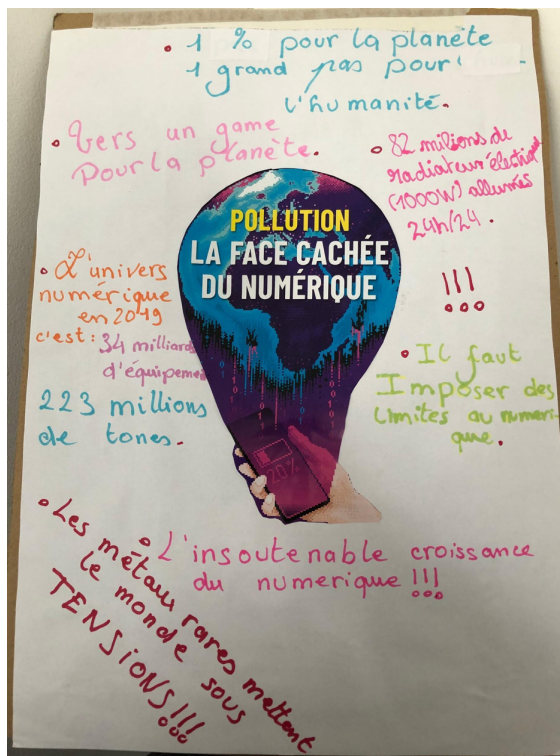 • 1 % pour la planète
1 grand pas pour
l'humanité.
• Vers un game
Pour la planète.
• 82 milions de
radiateur électrique
(1000W) allumés
24h/24.
!!!
POLLUTION
LA FACE CACHÉE
DU NUMÉRIQUE
20%
• L'univers
numérique
en 2019
c'est: 34 milliards
d'équipement
223 millions
de tones.
• Il faut
Imposer des
limites au numeri-
que.
• L'insoutenable croissance
du numerique !!!
• Les métaux rares mettent
le monde sous
TENSIONS!!!